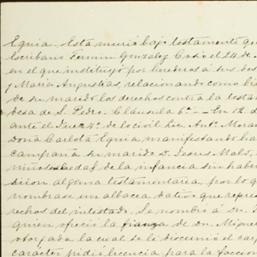 Eguia. Esta murió bajo testamento que
escribano Fermin Gonzalez Cosio el 24 de
en el que instituyó por herederos á sus
y Maria Angustias, relacionando como bie
de su marido los derechos contra la testa
de S. Pedro. Cláusula 6ª En 18 d
ante el Juez 4º de lo civil Lic. Antº
Doña Carlota Eguia manifestando ha
su marido Dn. Jesus
edad de la infancia sin haber
sicion alguna testamentaria, por lo q
nombrase un albacea dativo que repres
rechos del intestado. Se nombró a Dn. J
quien ofreció la fianza de Dn. Miguel
otorgada la cual se le discernió el car
carácter pidió licencia para la faccion